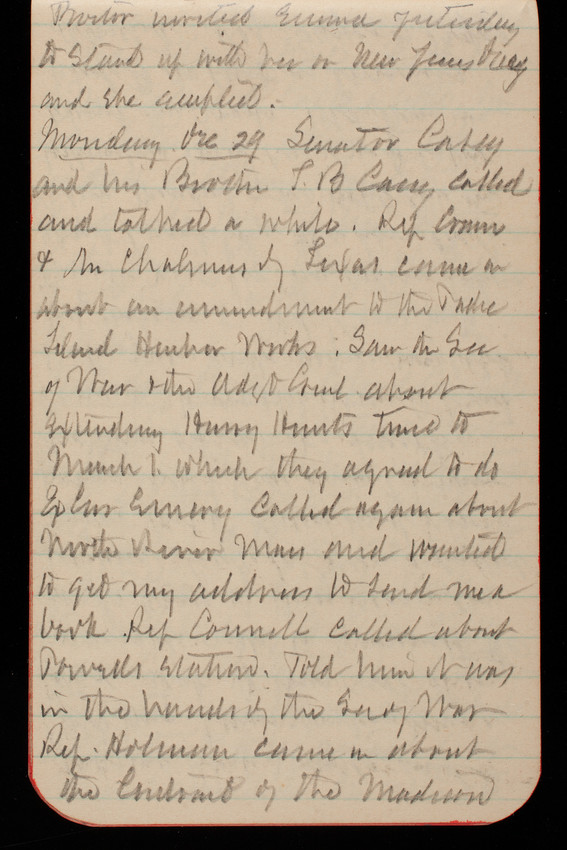 Proctor invited Emma yesterday
to stand up with her on New Years Day
and she accepted.
Monday Dec 29 Senator Casey
and his Brother T. B Casey called
and talked a while. Rep Crain
& Mr Chalmers of Texas came in
about an amendment to the Padre
Island Harbor Works. Saw the Sec
of War & the Adjt Genl about
extending Henry Hunts time to
March 1. which they agreed to do
Ex Gov Emery called again about
North River Man and wanted
to get my address to send me a
book. Rep Connell called about
Powells station. Told him it was
in the hands of the Sec of War
Rep. Holman came in about
the Contract of the Madison